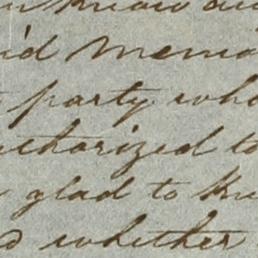 know
'd Memo
party who
uthorized to
glad to kn
d whether